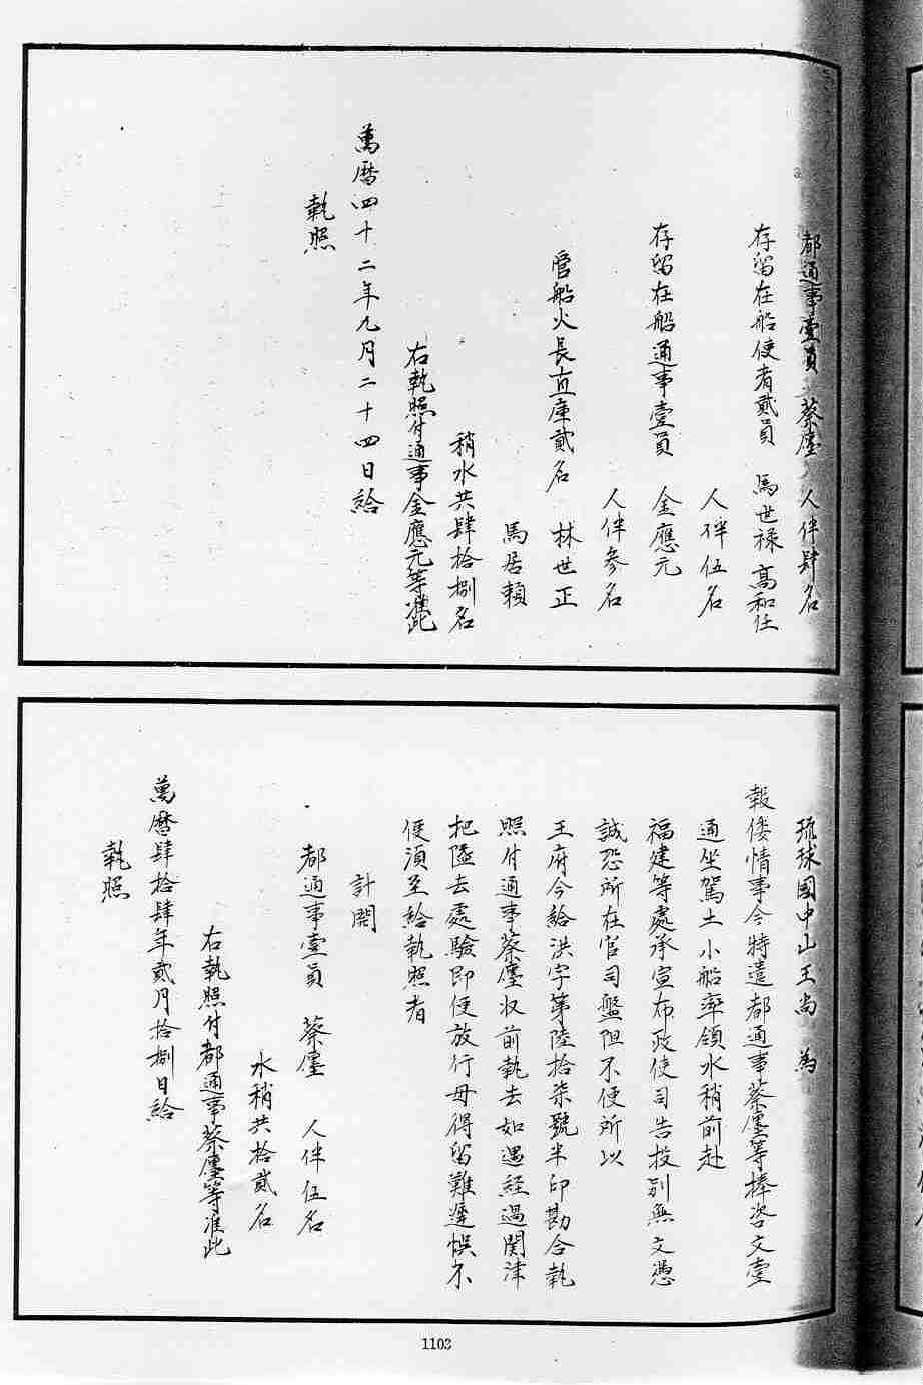 都通事壹員 蔡廛 人伴肆名
存留在船使者貳員 馬世祿 髙和任
人伴伍名
存留在船通事壹員 金應元
人伴參名
管船火長直庫貳名 林世正
馬居賴
稍水共肆拾捌名
右執照付通事金應元等准此
萬曆四十二年九月二十四日給
執照
琉球國中山王尚 為
報倭情事今特遣都通事蔡廛等捧咨文壹
通坐駕土小船率領水稍前赴
福建等處承宣布政使司告投别無文憑
誠恐所在官司盤阻不便所以
王府今給洪字苐陸拾柒號半印勘合執
照付通事蔡廛収前執去如遇經過関津
把隘去處驗即便放行毋得留難遲悮不
便湏至給執照者
計開
都通事壹員 蔡廛 人伴伍名
水稍共拾貳名
右執照付都通事蔡廛等准此
萬曆肆拾肆年貳月拾捌日給
執照
1103